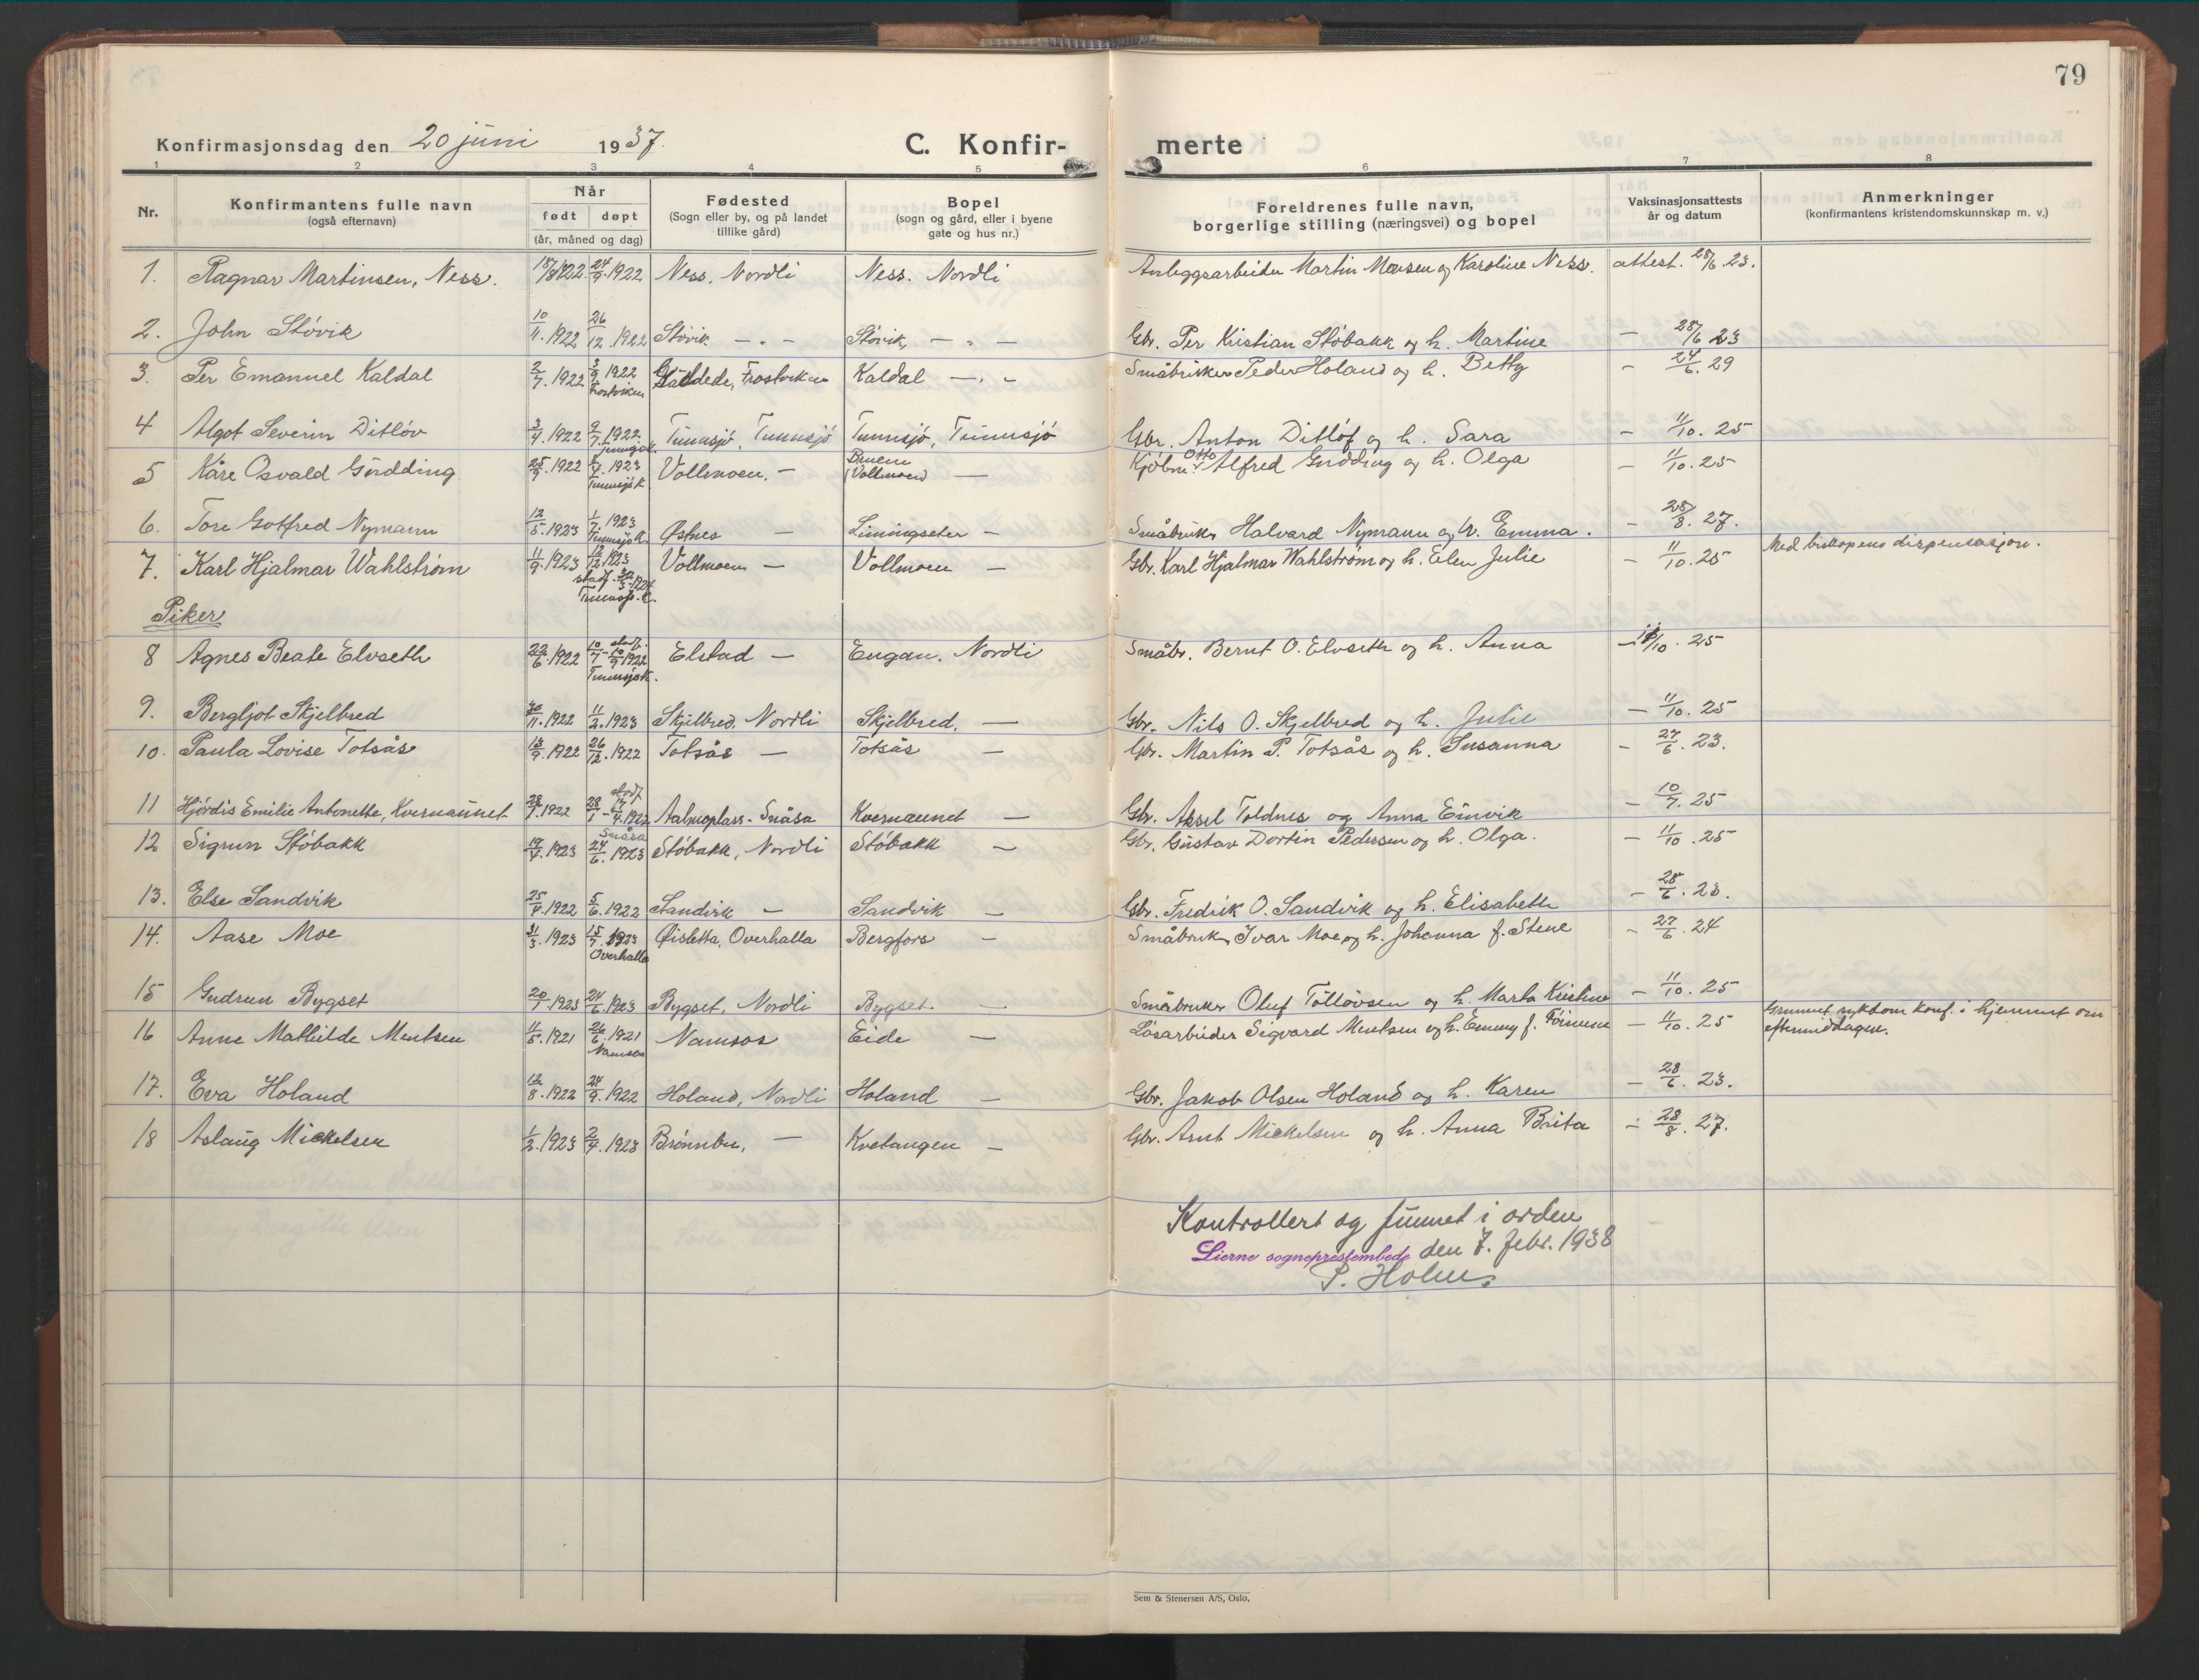 79
Konfirmasjonsdag den 20 juni 1937. C. Konfir- merte
1 2 3 4 5 6 7 8
Nr. Konfirmantens fulle navn (også efternavn) Når født døpt (år, måned og dag) Fødested (Sogn eller by, og på landet tillike gård) Bopel (sogn og gård, eller i byene gate og hus nr.) Foreldrenes fulle navn, borgerlige stilling (næringsvei) og bopel Vaksinasjonsattests år og datum Anmerkninger (konfirmantens kristendomskunnskap m. v.)
1. Ragnar Martinsen, Ness. 18/8 1922 24/9 1922 Ness, Nordli Ness. Nordli Anleggsarbeider Martin Monsen og Karoline Ness. attest. 28/6 23.
2. John Stövik 10/11. 1922 26/12. 1922 Stövik — " — Stövik, — " — Gbr. Per Kristian Stöbakk og h. Martine — 28/6 23
3. Per Emanuel Kaldal 2/7. 1922 3/9 1922 Frostviken Gäddede, Frostviken Kaldal — " — Småbruker Peder Holand og h. Betty — 24/6. 29
4 Algot Severin Ditlöv 3/4. 1922 9/7. 1922 Tunnsjö, Tunnsjö Tunnsjö, Tunnsjö Gbr. Anton Ditlöf og h. Sara — 11/10. 25
5 Kåre Osvald Gudding 25/9. 1922 1923 Tunnsjö K Vollmoen. — Bruem (Vollmoen) — Kjöbm. Otto Alfred Gudding og h. Olga — 11/10. 25
6. Tore Gotfred Nymann 12/5. 1923 1/7. 1923 Tunnsjö K. Østnes — Liningseter — Småbruk. Halvard Nymann og h. Emma. — 28/8. 27.
7. Karl Hjalmar Wahlström 11/9. 1923 12/12 1923 stadf. 30/3 1924 Tunnsjö K. Vollmoen — Vollmoen — Gbr. Karl Hjalmar Wahlström og h. Elen Julie — 11/10. 25 Med biskopens dispensasjon.
Piker
8 Agnes Beate Elvseth 22/6. 1922 10/7 - stadf. 10/9 1922 Tunnsjö K. Elstad — Engan. Nordli Småbr. Bernt O. Elvseth og h. Anna — 11/10. 25
9. Bergljot Skjelbred 30/11. 1922 11/2. 1923 Skjelbred, Nordli Skjelbred. — Gbr. Nils O. Skjelbred og h. Julie — 11/10. 25
10. Paula Lovise Totsås 13/9. 1922 26/12. 1922 Totsås — Totsås — Gbr. Martin P. Totsås og h. Susanna — 27/6. 23.
11 Hjördis Emilie Antonette, Kvernaunet 28/1. 1922 28/1 - stadf. 17/4. 1922 Snåsa Aalmoplass - Snåsa Kvernaunet — Gbr. Aksel Toldnes og Anna Einvik — 10/7. 25
12 Sigrun Stöbakk 19/4. 1923 24/6. 1923 Stöbakk, Nordli Stöbakk — Gbr. Gustav Dortin Pedersen og h. Olga. — 11/10. 25
13. Else Sandvik 25/4. 1922 5/6. 1922 Sandvik — Sandvik — Gbr. Fredrik O. Sandvik og h. Elisabeth — 28/6. 23.
14. Aase Moe 31/3. 1923 15/7. 1923 Overhalla Øisletta, Overhalla Bergfors — Småbruk. Ivar Moe og h. Johanna f. Stene — 27/6. 24
15 Gudrun Bygset 20/1. 1923 24/6. 1923 Bygset, Nordli Bygset. — Småbruker Oluf Tollövsen og h. Marta Kristine — 11/10. 25
16 Anne Mathilde Mentsen 11/5. 1921 26/6. 1921 Namsos Namsos Eide — Løsarbeider Sigvard Mentsen og h. Emmy f. — 11/10. 25 Grunnet sykdom konf. i hjemmet om eftermiddagen.
17. Eva Holand 12/8. 1922 24/9. 1922 Holand, Nordli Holand — Gbr. Jakob Olsen Holand og h. Karen — 28/6. 23.
18 Aslaug Mickelsen 1/2. 1923 2/4. 1923 Brönnbu, — Kvetangen — Gbr. Arnt Mickelsen og h. Anna Brita — 28/8. 27.
Kontrollert og funnet i orden
Lierne sogneprestembede den 7. febr. 1938
P. Holm.
Sem & Stenersen A/S, Oslo.